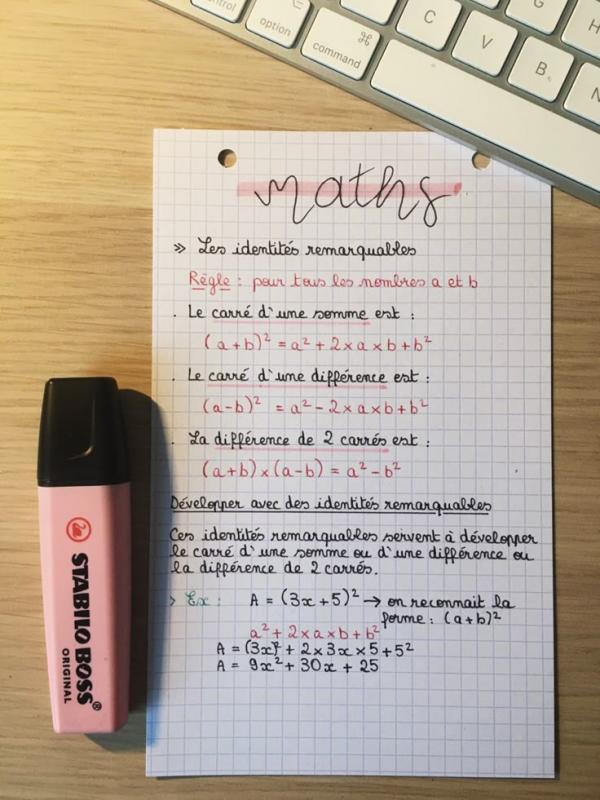 control
option
⌥
command
⌘
C
V
B
N
G
H
maths
>> Les identités remarquables
Règle : pour tous les nombres a et b
. Le carré d'une somme est :
(a+b)² = a² + 2×a×b+b²
. Le carré d'une différence est :
(a-b)² = a² - 2×a×b+b²
. La différence de 2 carrés est :
(a+b)×(a-b) = a² - b²
Développer avec des identités remarquables
Ces identités remarquables servent à développer
le carré d'une somme ou d'une différence ou
la différence de 2 carrés.
> Ex : A = (3x+5)² → on reconnait la
forme : (a+b)²
a² + 2×a×b+b²
A = (3x)² + 2×3x×5+5²
A = 9x² + 30x + 25
STABILO BOSS®
ORIGINAL